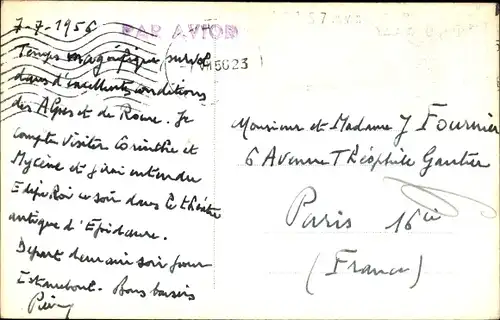 7-7-1956
PAR AVION
Temps magnifique, survol
dans d'excellentes conditions
des Alpes et de Rome. Je
compte visiter Corinthe et
Mycène et j'irai entendre
Edipe Roi ce soir dans le théâtre
antique d'Epidaure.
Départ demain soir pour
Istambout. Bons baisers
Monsieur et Madame J Fournier
6 Avenue Théophile Gautier
Paris 16e
(France)